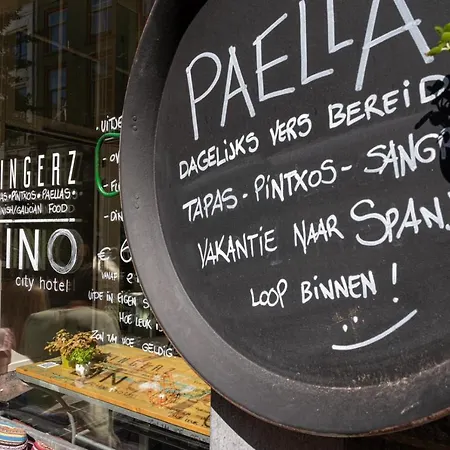 PAELLA
DAGELIJKS VERS BEREID
TAPAS - PINTXOS - SANG
VAKANTIE NAAR SPAN.
LOOP BINNEN !
INGERZ
AS • PINTXOS • PAELLAS
NISH/GALICIAN FOOD
INO
city hotel
- UITGE
- OV
- FU
- DIN
€ 6
VANAF
UPDE IN EIGEN S
HOE LEUK I
ZON T/M VOE - GELDIG